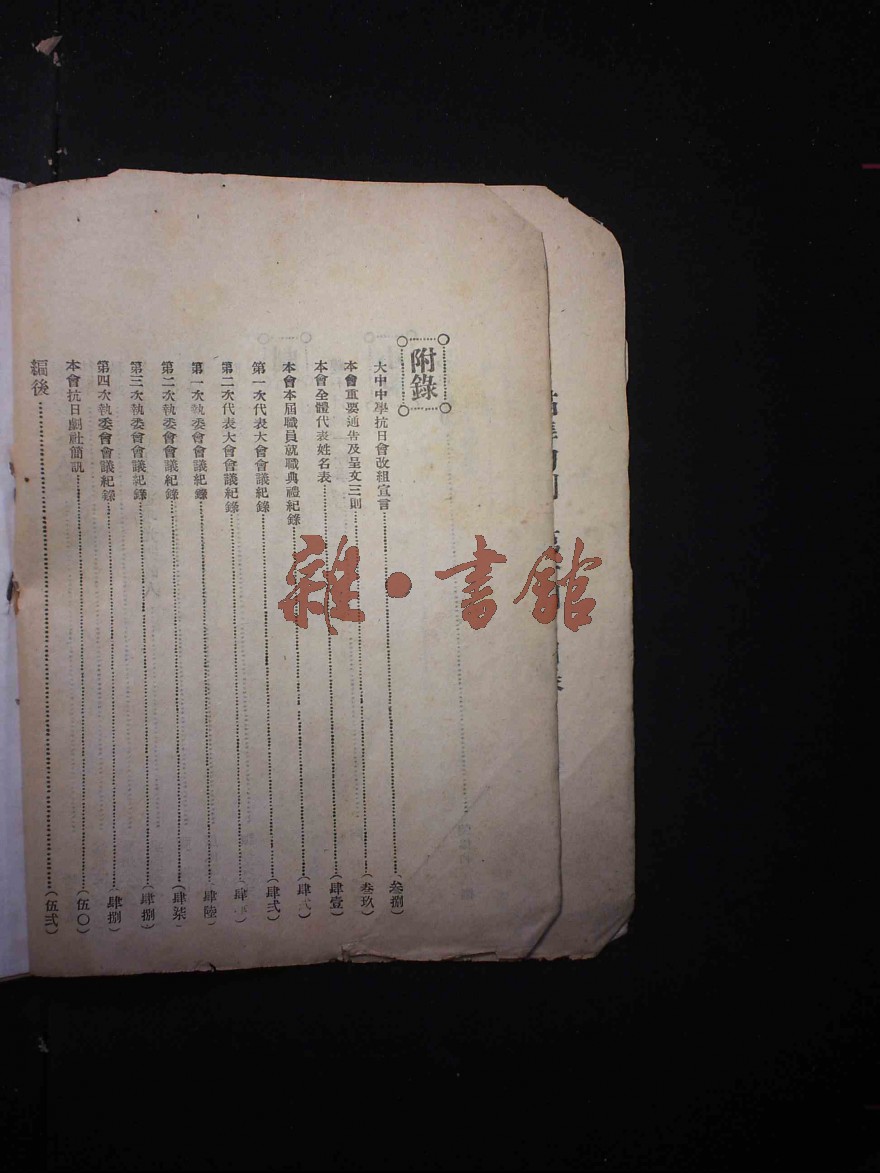 附錄
大中中學抗日會改組宣言……(叁捌)
本會重要通告及呈文三則……(叁玖)
本會全體代表姓名表……(肆壹)
本會本屆職員就職典禮紀錄……(肆弍)
第一次代表大會會議紀錄……(肆弍)
第二次代表大會會議紀錄……(肆
第一次執委會會議紀錄……(肆陸)
第二次執委會會議紀錄……(肆柒)
第三次執委會會議紀錄……(肆捌)
第四次執委會會議紀錄……(肆捌)
本會抗日劇社簡訊……(伍〇)
編後……(伍弍)
雜·書館